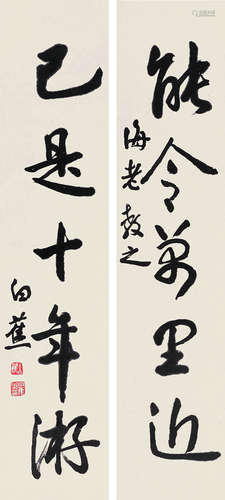 能令万里近
海老教之
已是十年游
白蕉